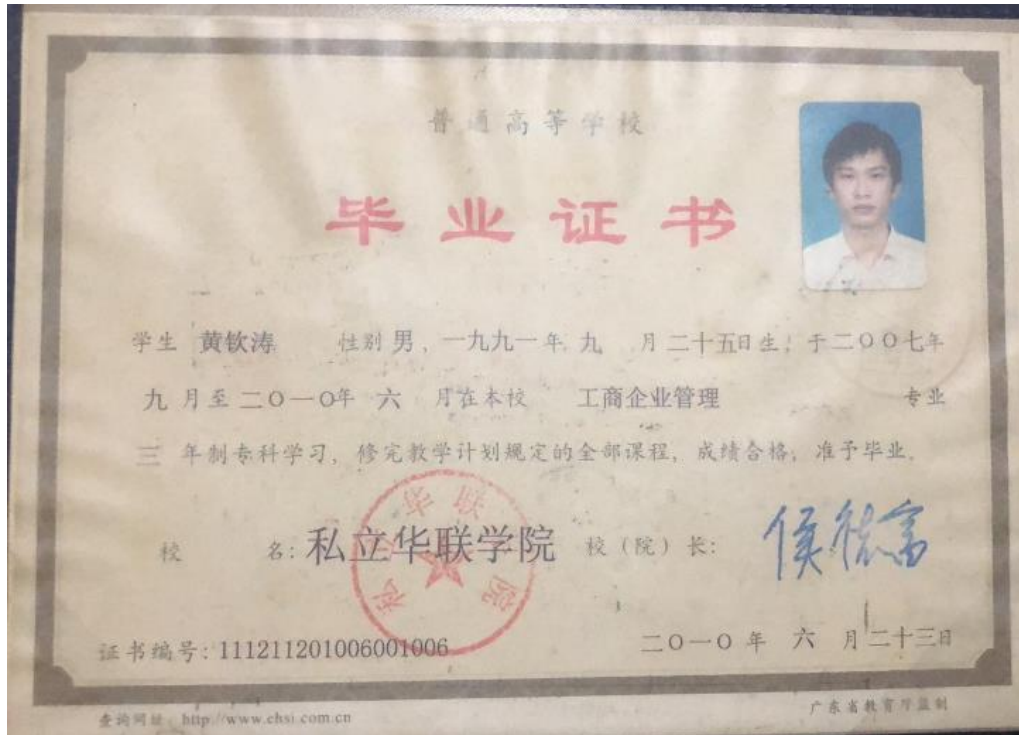 普通高等学校
毕业证书
学生 黄钦涛 性别 男，一九九一年 九 月 二十五日生，于二〇〇七年
九 月至 二〇一〇年 六 月在本校 工商企业管理 专业
三 年制专科学习，修完教学计划规定的全部课程，成绩合格，准予毕业。
校 名：私立华联学院 校（院）长：侯德富
私立华联学院
证书编号：111211201006001006 二〇一〇 年 六 月 二十三日
查询网址：http://www.chsi.com.cn 广东省教育厅监制